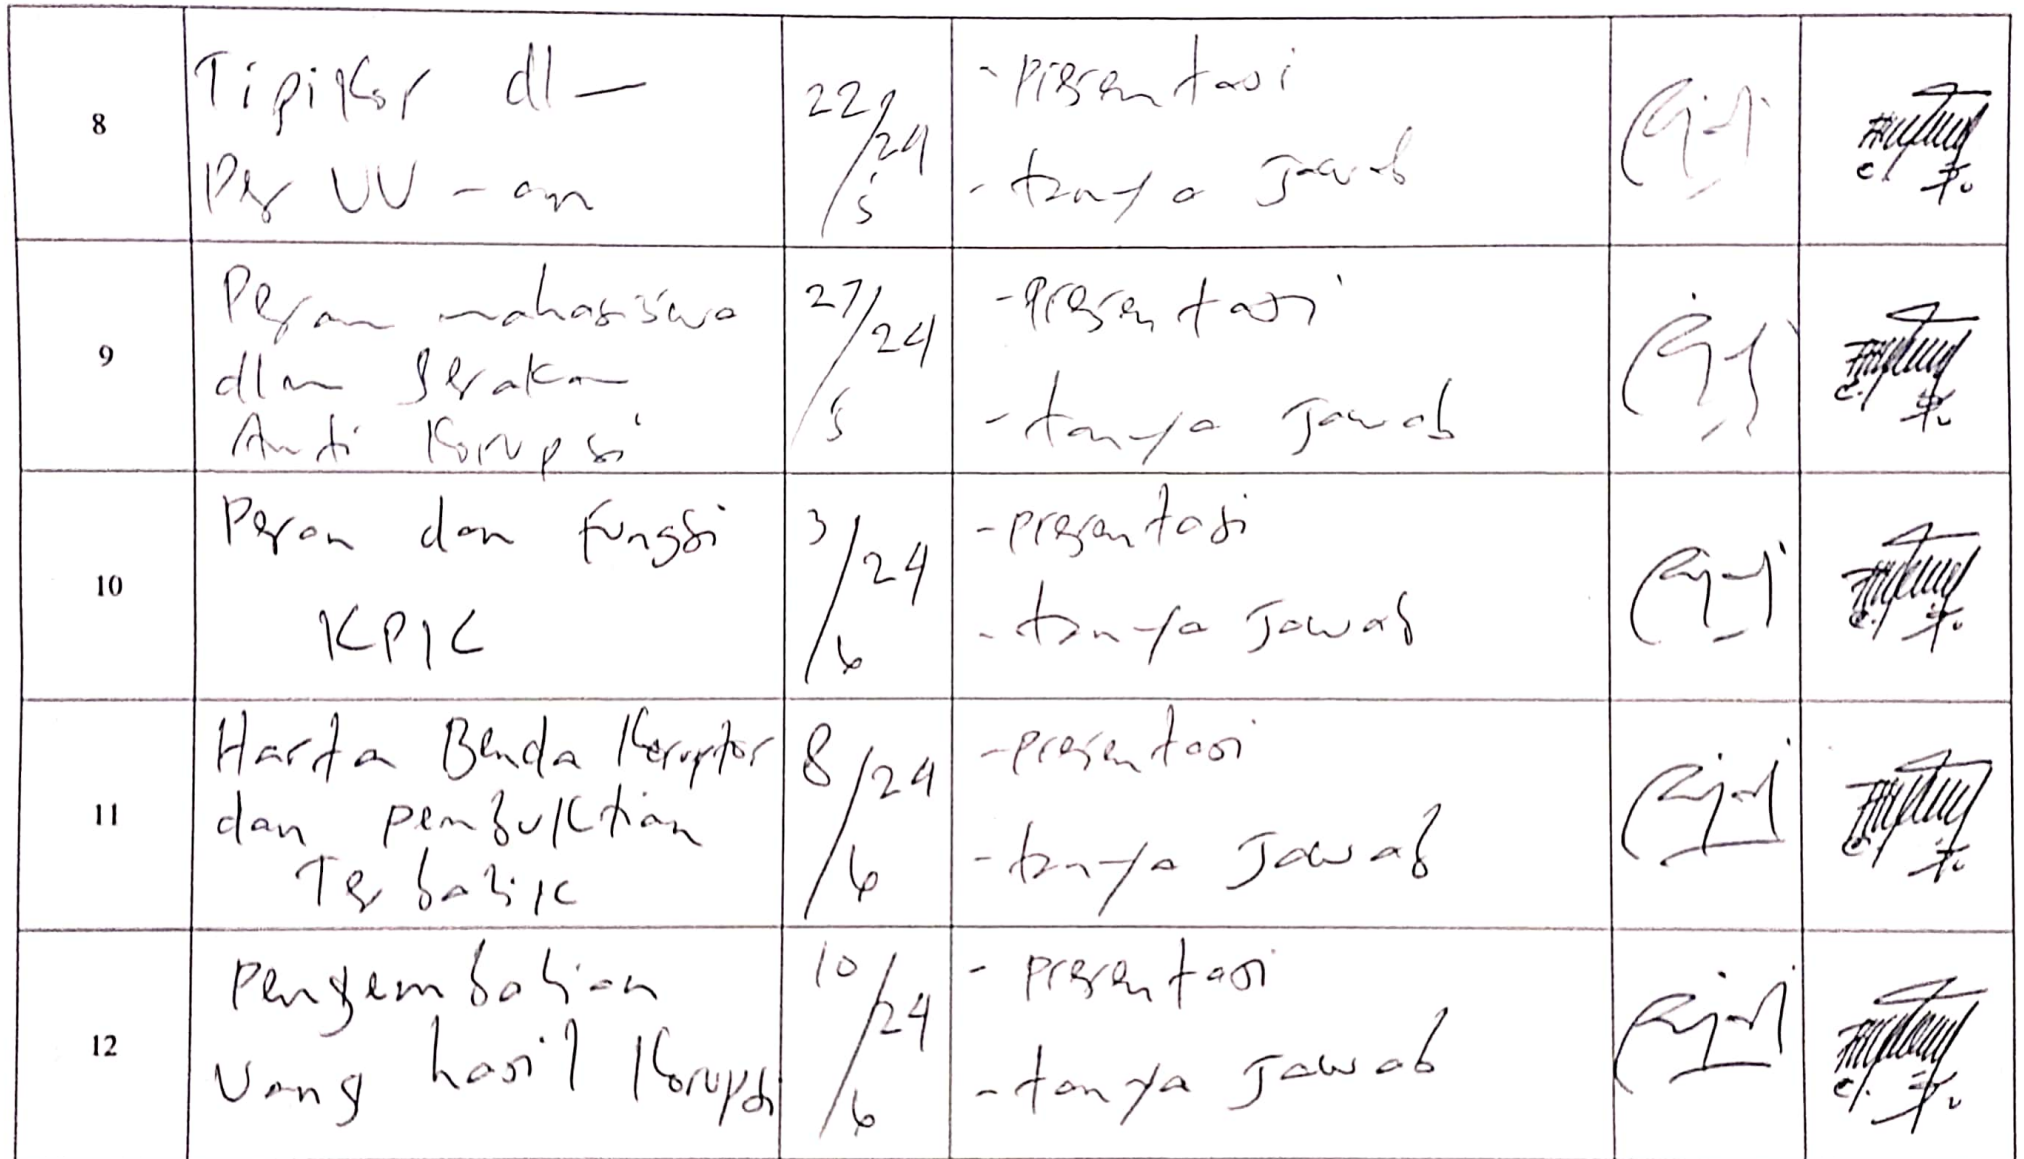 8
Tipikor dl -
Per UU - an
22/5/24
- presentasi
- tanya jawab
9
Peran mahasiswa
dlm Gerakan
Anti Korupsi
27/5/24
- presentasi
- tanya jawab
10
Peran dan fungsi
KPK
3/6/24
- presentasi
- tanya jawab
11
Harta Benda Koruptor
dan pembuktian
Terbalik
8/6/24
- presentasi
- tanya jawab
12
Pengembalian
Uang hasil Korupsi
10/6/24
- presentasi
- tanya jawab